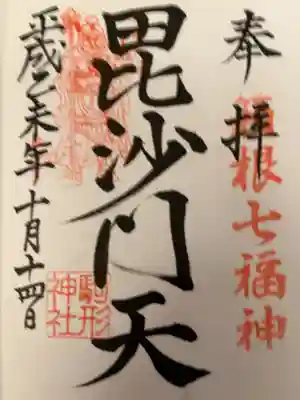 奉拝
箱根七福神
毘沙門天
駒形
神社
平成乙未年十月十四日